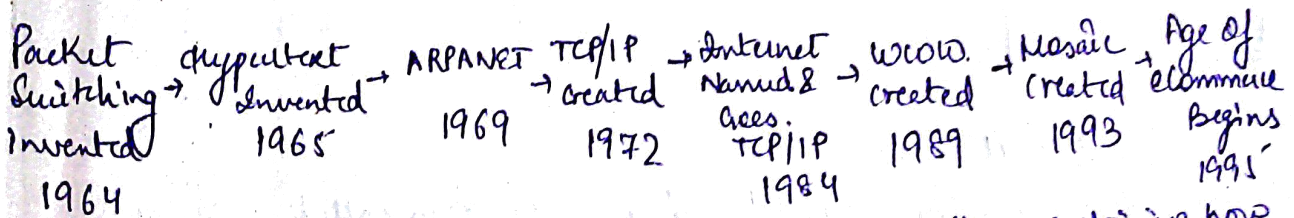 Packet Switching Invented 1964
→ Hypertext Invented 1965
→ ARPANET 1969
→ TCP/IP Created 1972
→ Internet Named & Goes TCP/IP 1984
→ WWW. Created 1989
→ Mosaic Created 1993
→ Age of eCommerce Begins 1995